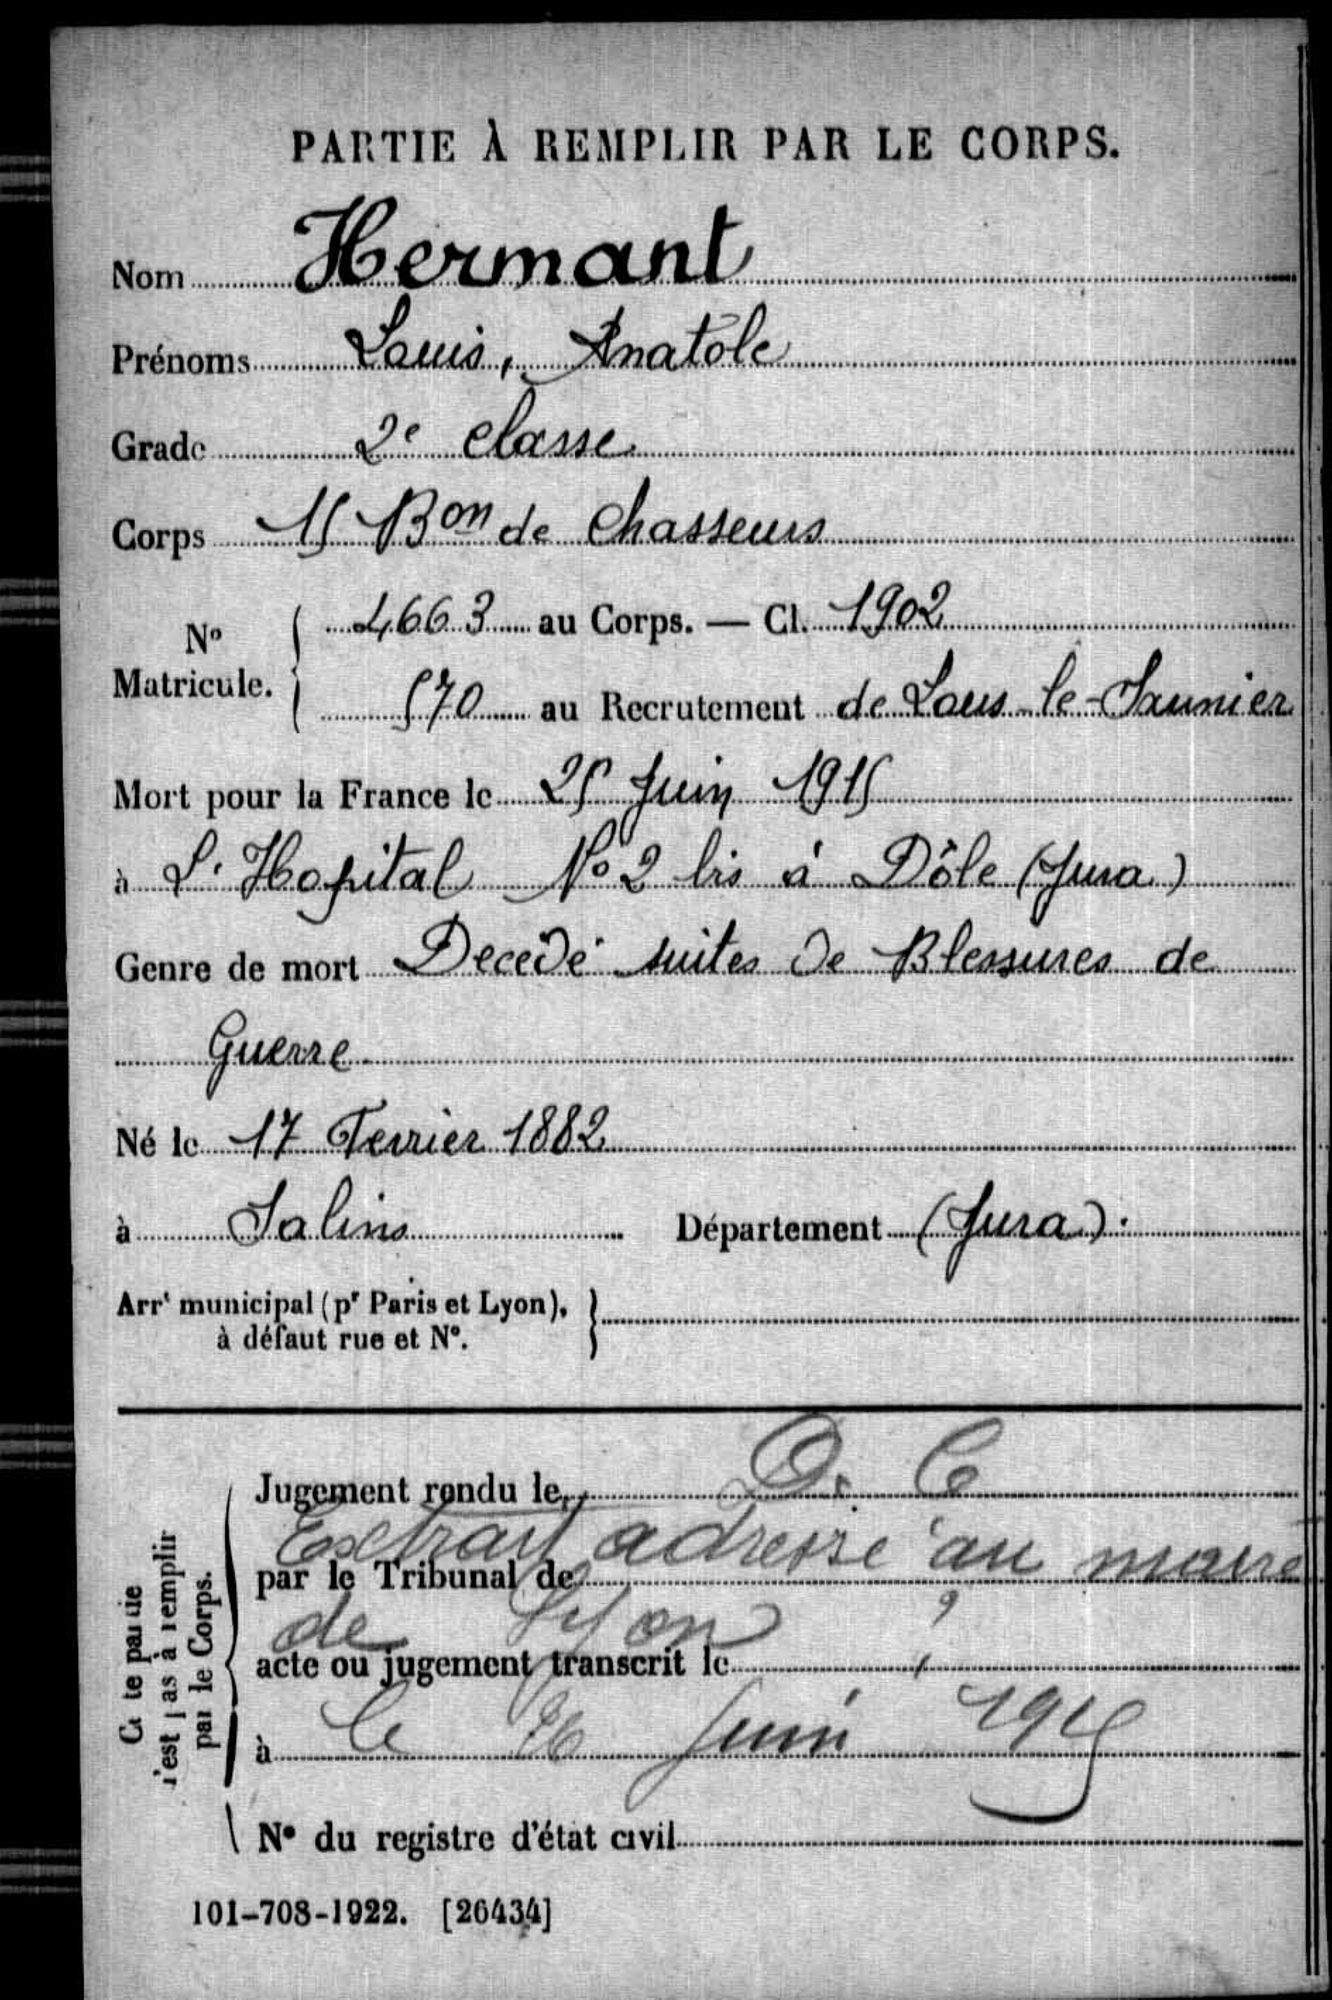 PARTIE À REMPLIR PAR LE CORPS.
Nom Hermant
Prénoms Louis, Anatole
Grade 2e classe
Corps 15 Bon de Chasseurs
No Matricule. 4663 au Corps. — Cl. 1902
570 au Recrutement de Lons-le-Saunier
Mort pour la France le 25 Juin 1915
à L'Hopital No 2 bis à Dôle (Jura)
Genre de mort Decedé suites de Blessures de
Guerre
Né le 17 Fevrier 1882
à Salins Département (Jura).
Arrt municipal (pr Paris et Lyon),
à défaut rue et No.
Cette partie n'est pas à remplir par le Corps.
Jugement rendu le D. C
Extrait adressé au maire
par le Tribunal de
de Lyon
acte ou jugement transcrit le
à le 26 Juin 1915
No du registre d'état civil
101-708-1922. [26434]